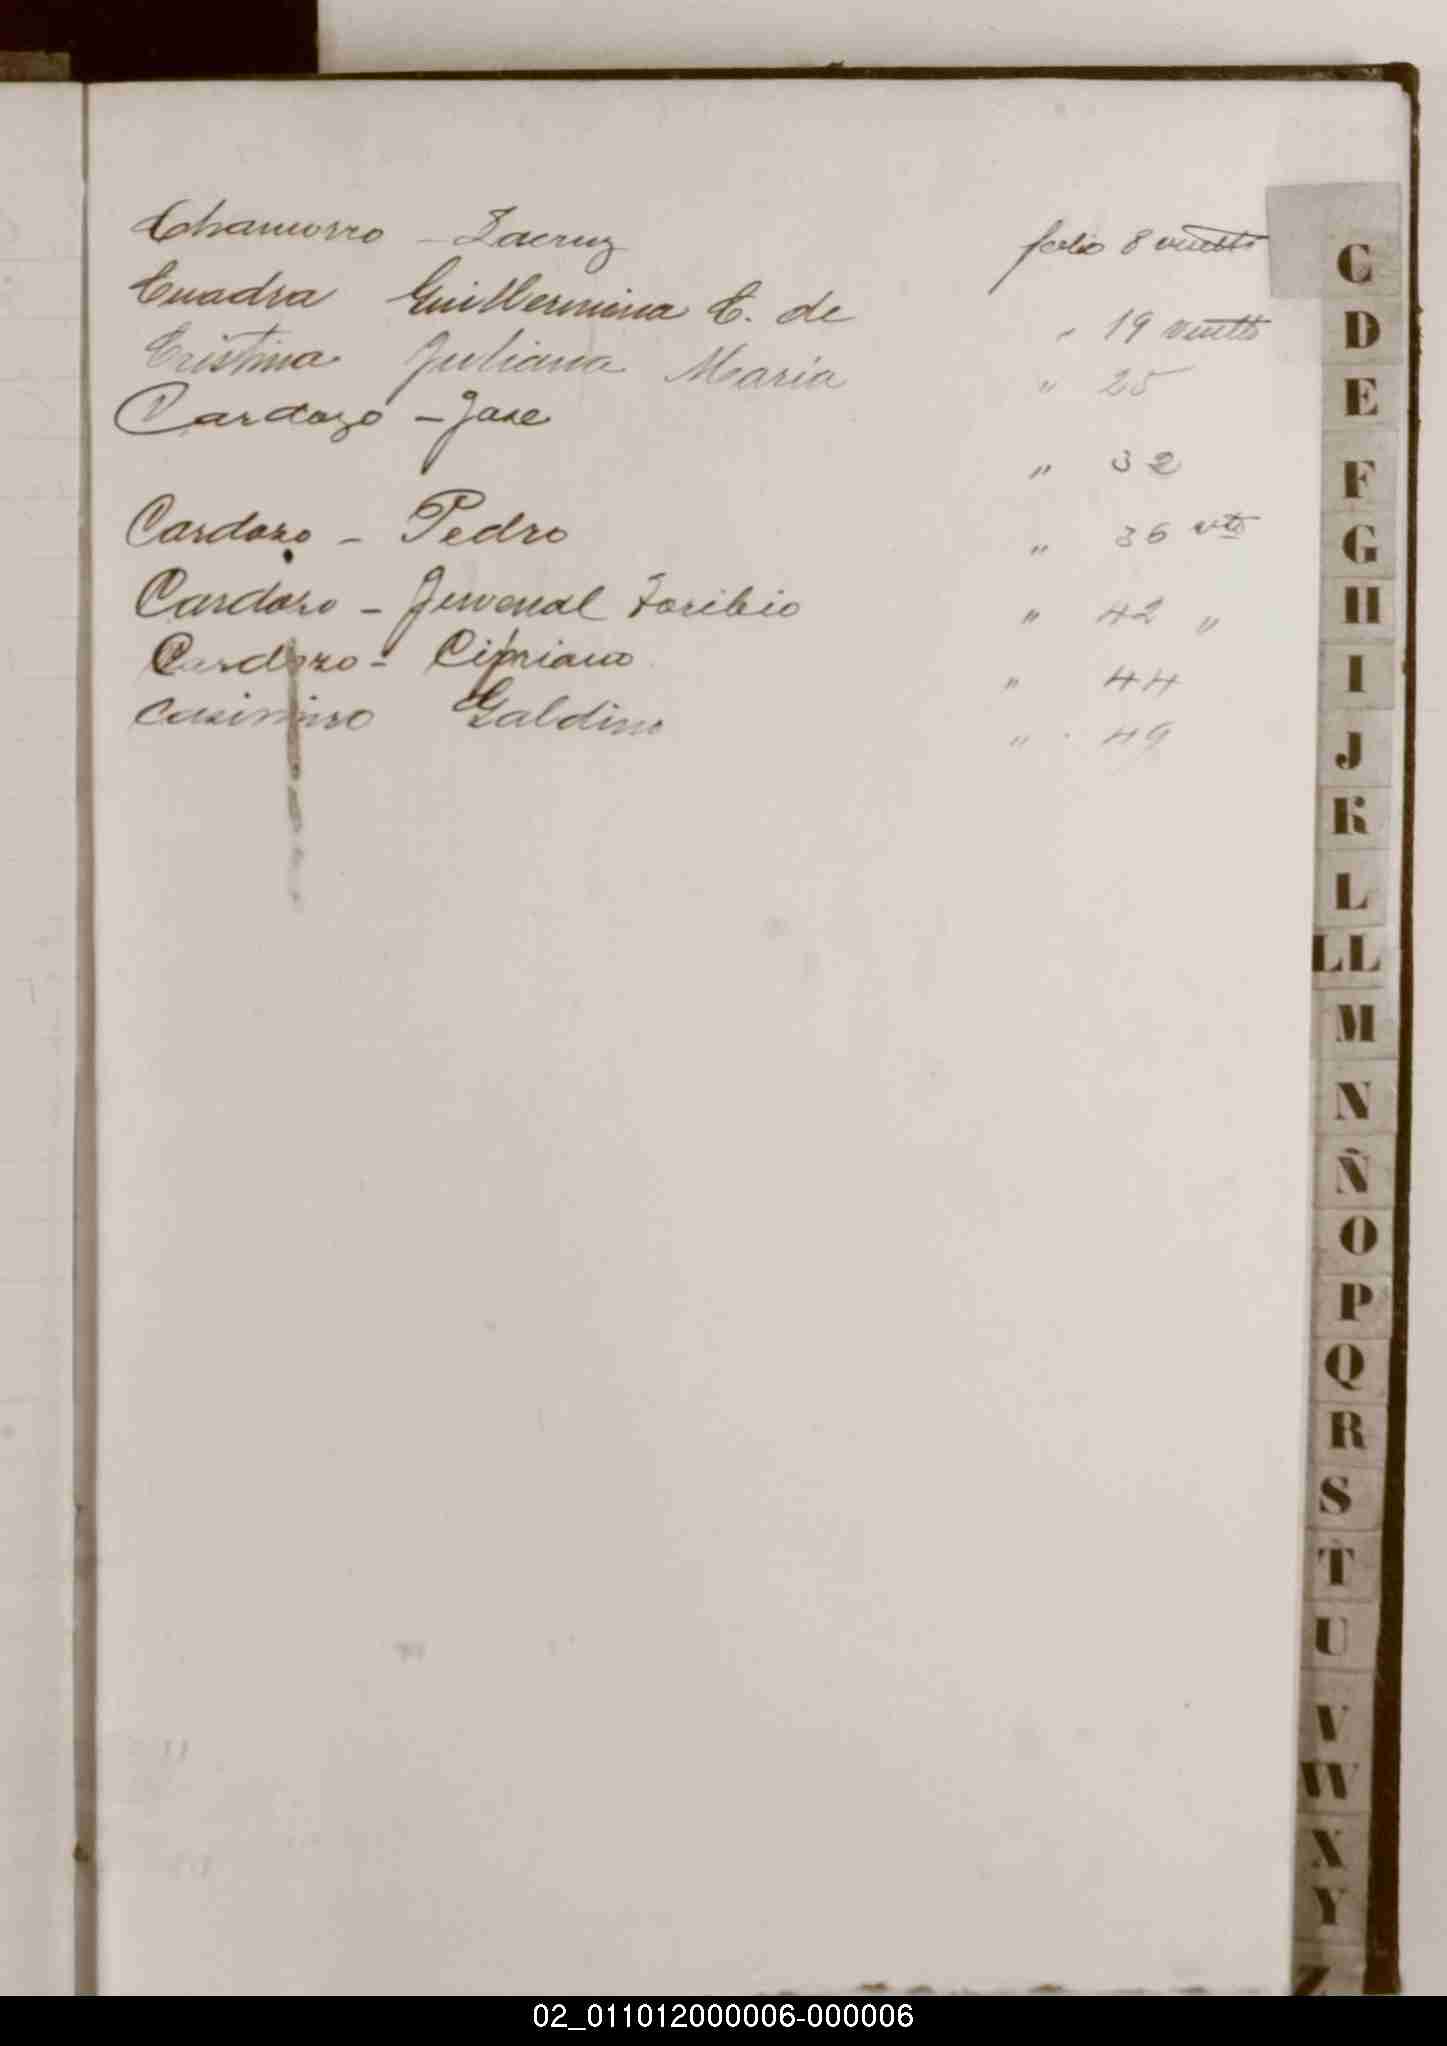 Chamorro - Lacruz folio 8 vuelto
Cuadra Guillermina C. de " 19 vuelto
Cristina Juliana Maria " 25
Cardozo - Jose " 32
Cardozo - Pedro " 36 vto
Cardozo - Juvenal Toribio " 42 "
Cardozo - Cipriano " 44
Casimiro Galdino " 49
C
D
E
F
G
H
I
J
K
L
LL
M
N
Ñ
O
P
Q
R
S
T
U
V
W
X
Y
Z
02_011012000006-000006